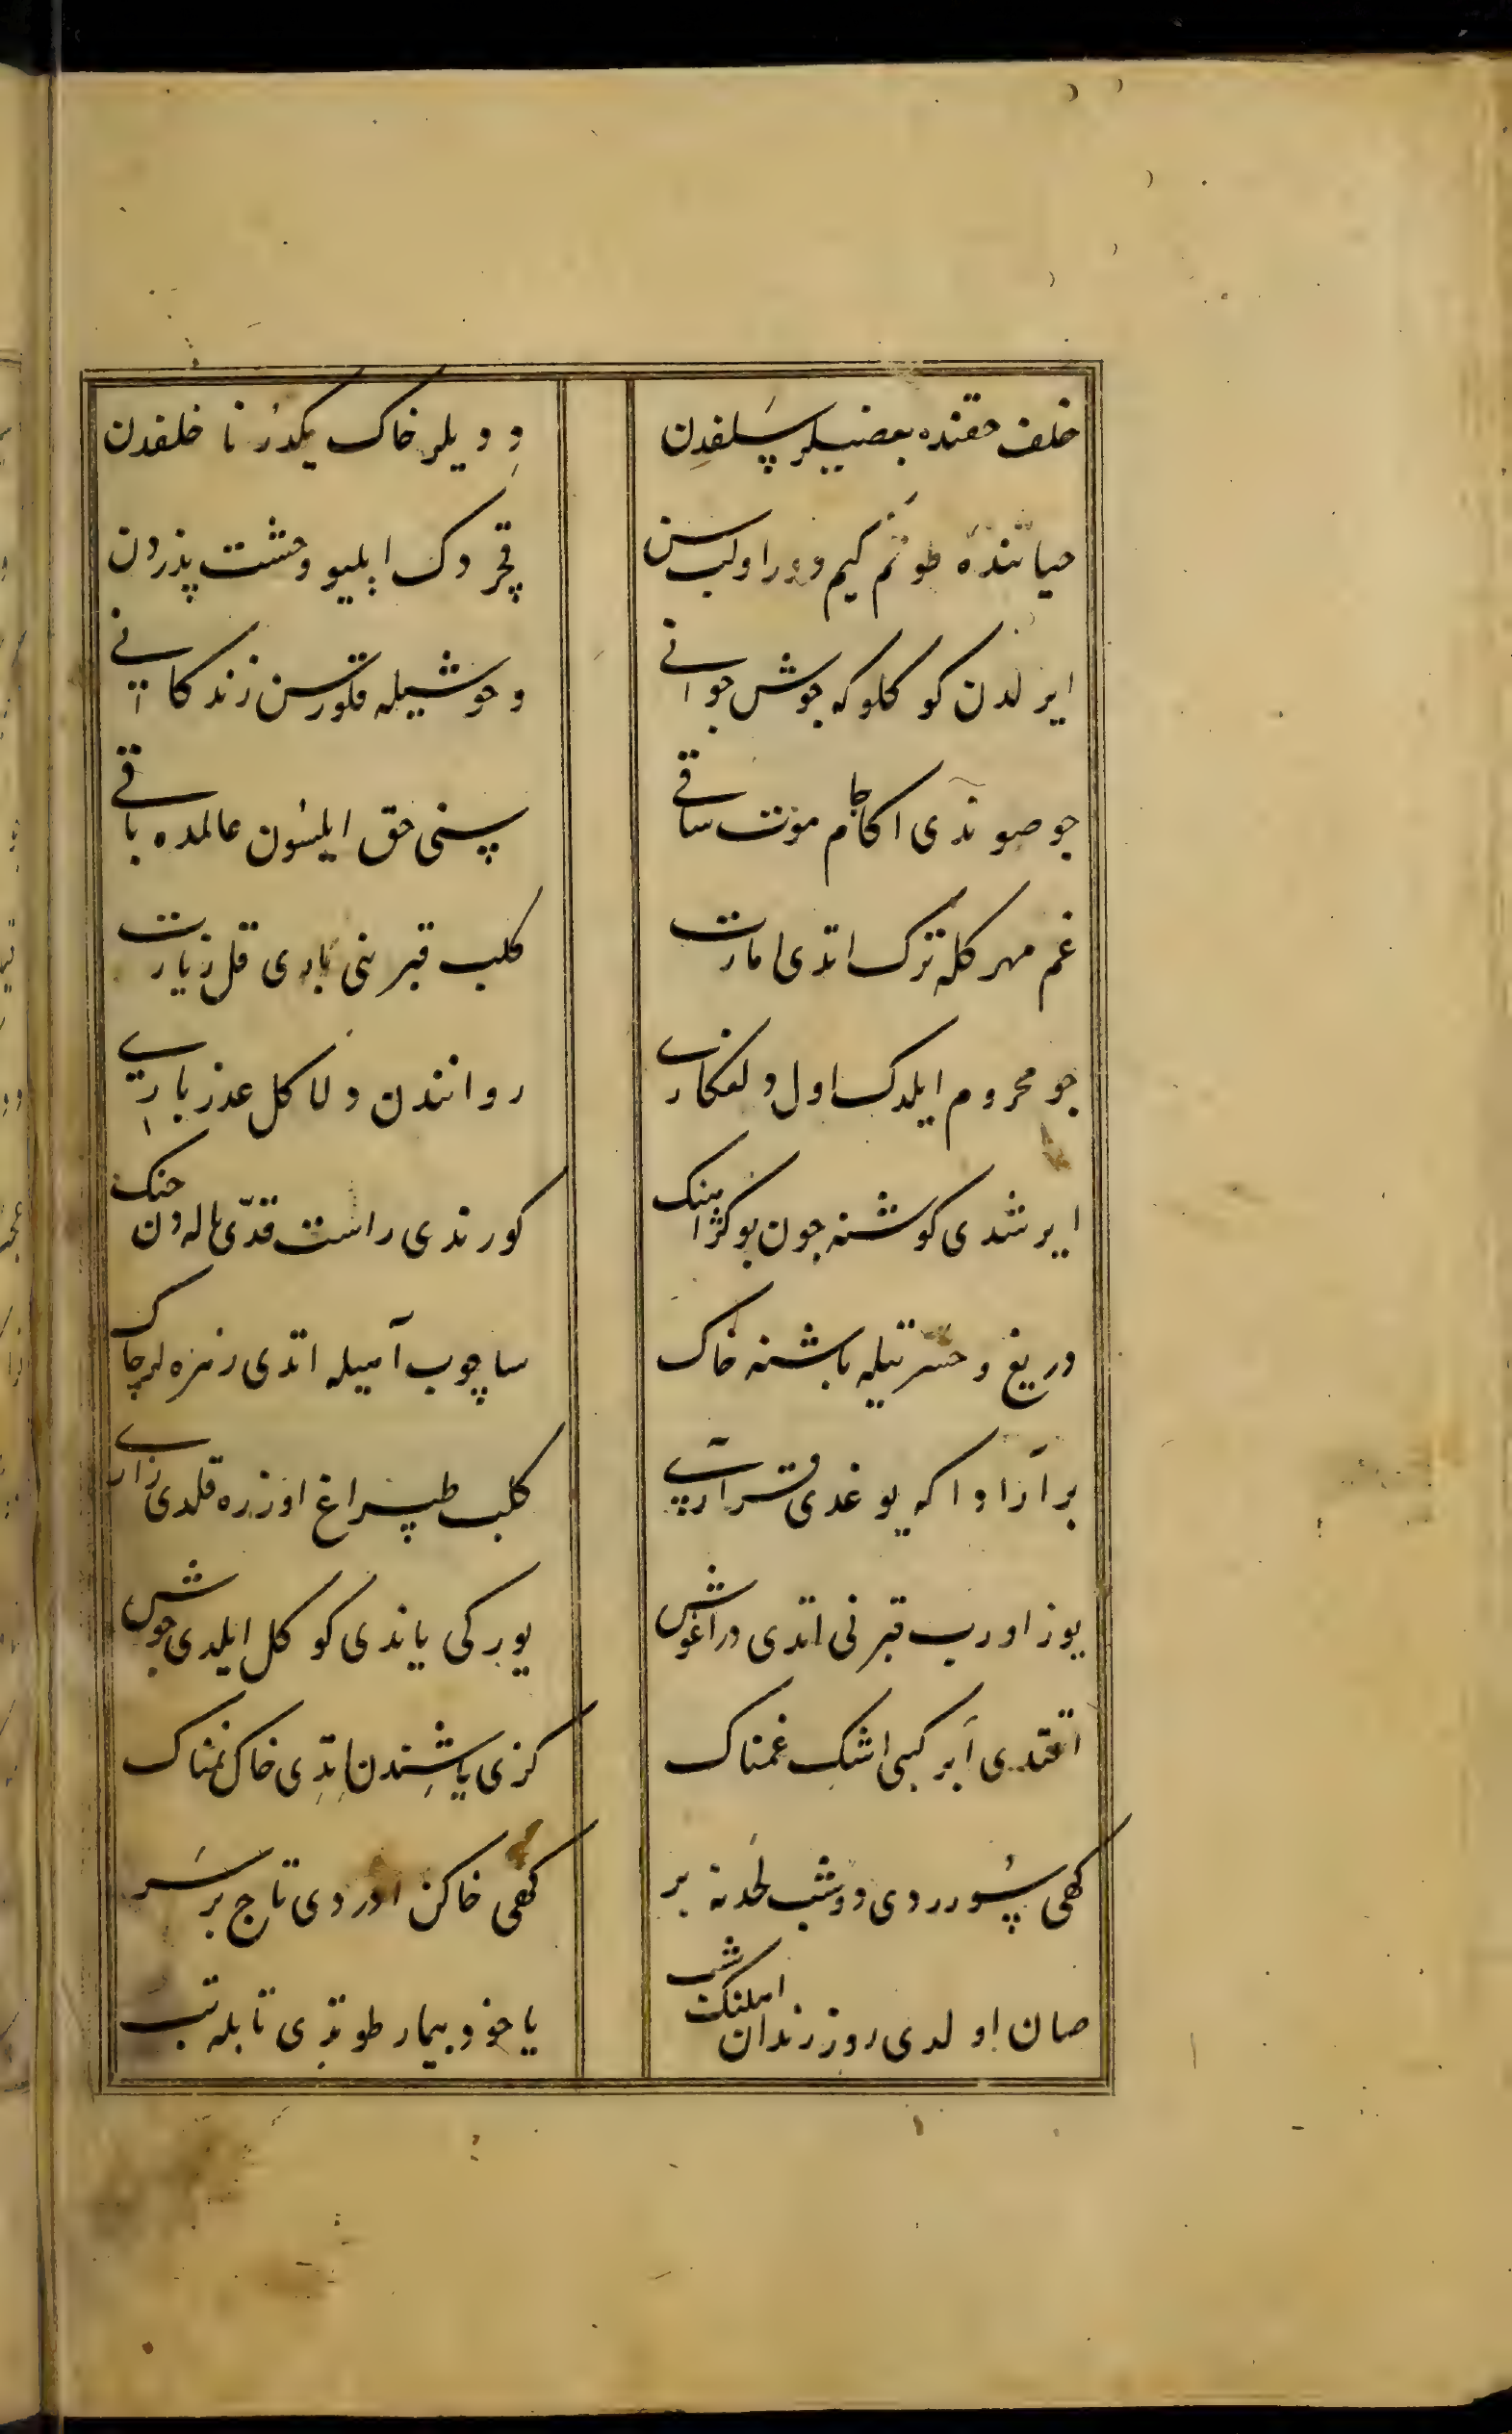 خلف حقنده بعضیلر سلفدن دیدیلر خاک یکدر نا خلفدن
حیاتنده طوتم کیم دور اولب سن قچردک ایلیو وحشت پدردن
ایرلدن کو کلوکه جوش جوانی وحوشیله قلورسن زندکانی
جو صوندی اکا جام موت ساقی سنی حق ایلسون عالمده باقی
غم مهرکله ترک اتدی امارت کلب قبرنی باری قل زیارت
جو محروم ایلدک اول دلفکاری روانندن دلا کل عذر باری
ایرشدی کوشنه جون بو کژ آهنک کورندی راست قدی لاله دن جنک
دریغ و حسرتیله باشنه خاک ساچوب آهیله اتدی زهره لر چاک
بر آرادا که یوغدی قراری کلب طپراغ اوزره قلدی زاری
یوز اورب قبرنی اتدی دراغوش یورکی یاندی کوکل ایلدی جوش
اقتدی ابر کبی اشک غمناک کزی یاشندن اتدی خاک نمناک
کهی سوردی دوشب لحدنه بر کهی خاکن اوردی تاج بر سر
صان اولدی روز زندان املنک شب یا خود بیمار طوتدی تابله تب